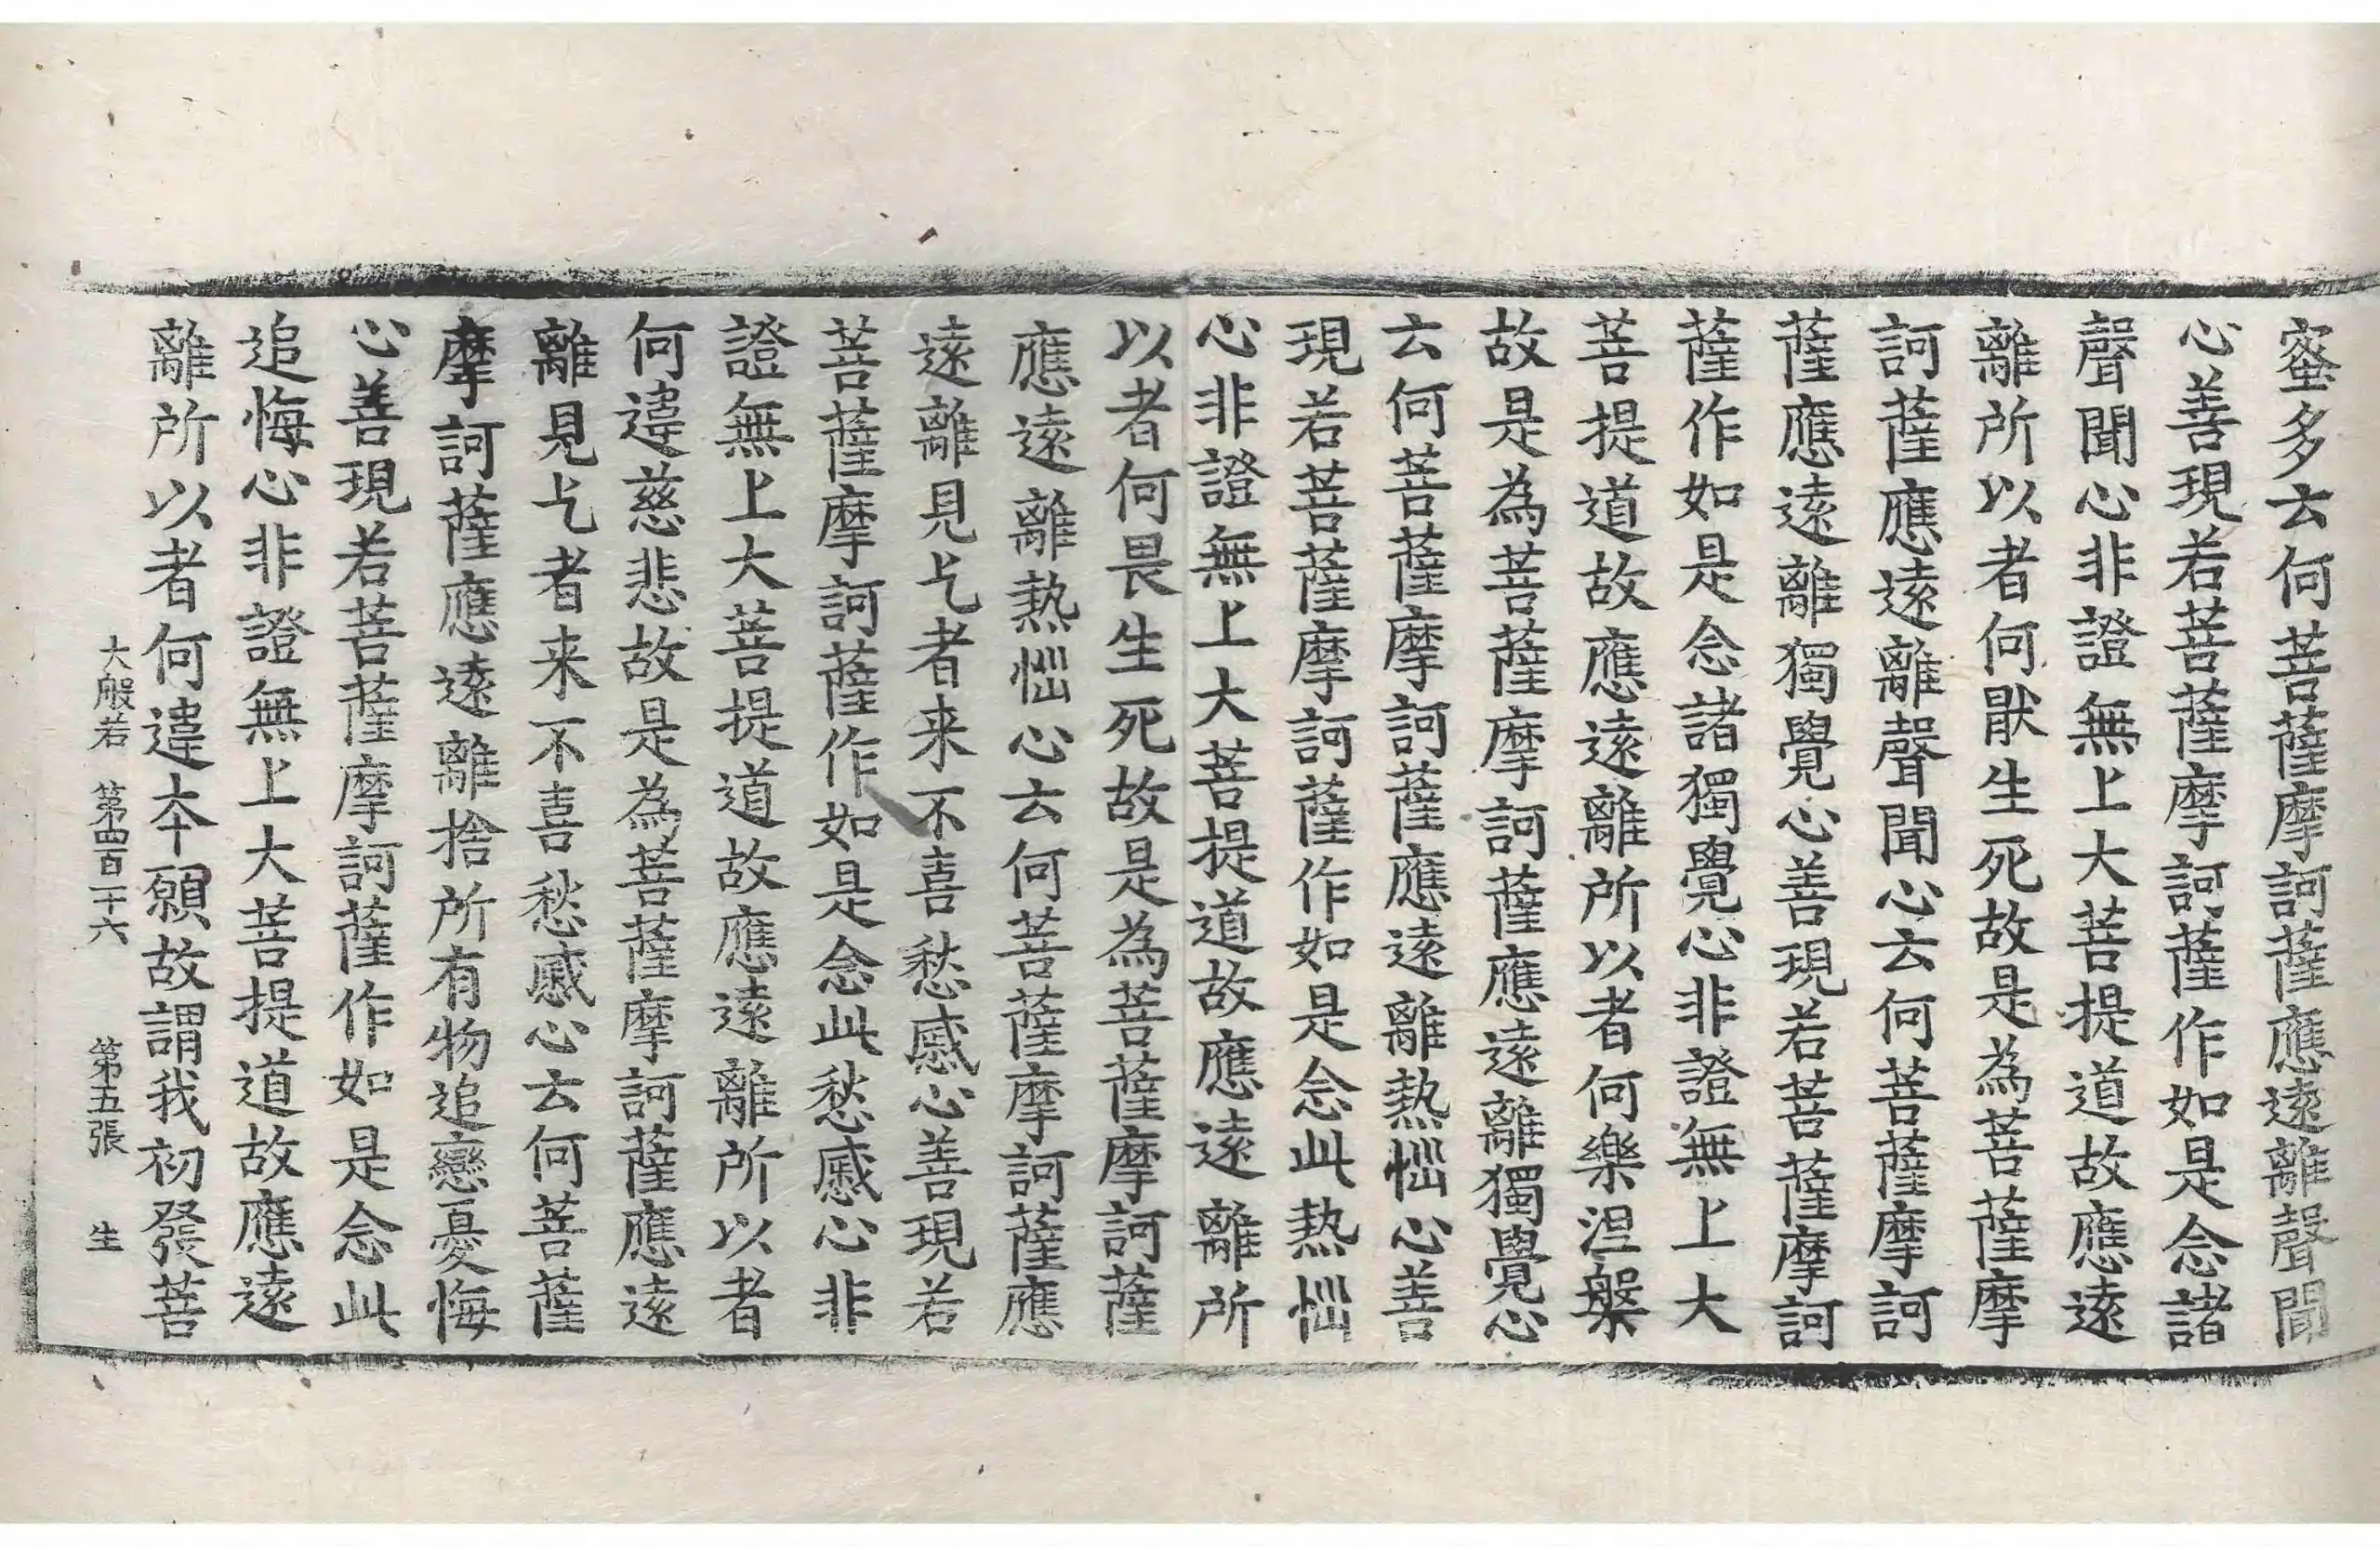 蜜多云何菩薩摩訶薩應遠離聲聞
心善現若菩薩摩訶薩作如是念諸
聲聞心非證無上大菩提道故應遠
離所以者何猒生死故是為菩薩摩
訶薩應遠離聲聞心云何菩薩摩訶
薩應遠離獨覺心善現若菩薩摩訶
薩作如是念諸獨覺心非證無上大
菩提道故應遠離所以者何樂涅槃
故是為菩薩摩訶薩應遠離獨覺心
云何菩薩摩訶薩應遠離熱惱心善
現若菩薩摩訶薩作如是念此熱惱
心非證無上大菩提道故應遠離所
以者何畏生死故是為菩薩摩訶薩
應遠離熱惱心云何菩薩摩訶薩應
遠離見乞者来不喜愁慼心善現若
菩薩摩訶薩作如是念此愁慼心非
證無上大菩提道故應遠離所以者
何違慈悲故是為菩薩摩訶薩應遠
離見乞者来不喜愁慼心云何菩薩
摩訶薩應遠離捨所有物追戀憂悔
心善現若菩薩摩訶薩作如是念此
追悔心非證無上大菩提道故應遠
離所以者何違本願故謂我初發菩
大般若 第四百十六 第五張 生